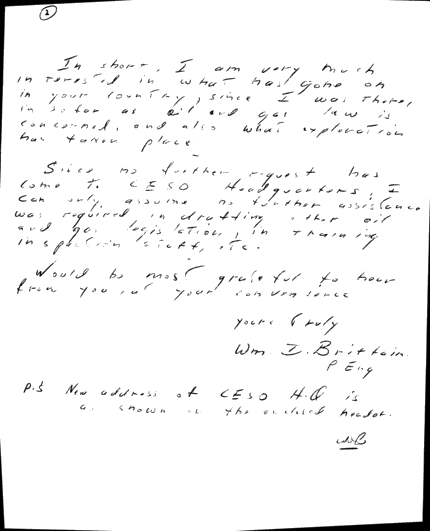 2
In short, I am very much
interested in what has gone on
in your country, since I was there,
in so far as oil and gas law is
concerned, and also what exploration
has taken place
Since no further request has
come to CESO Headquarters, I
can only assume no further assistance
was required in drafting other oil
and gas legislation, in training
inspection staff, etc.
Would be most grateful to hear
from you at your convenience
yours truly
Wm. I. Brittain
P Eng
P.S New address of CESO H.Q is
as shown on the enclosed header.
WB